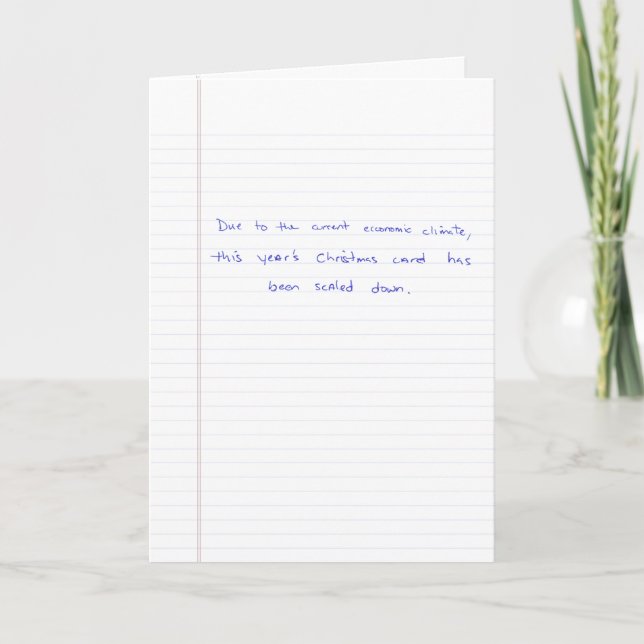 Due to the current economic climate,
this year's Christmas card has
been scaled down.